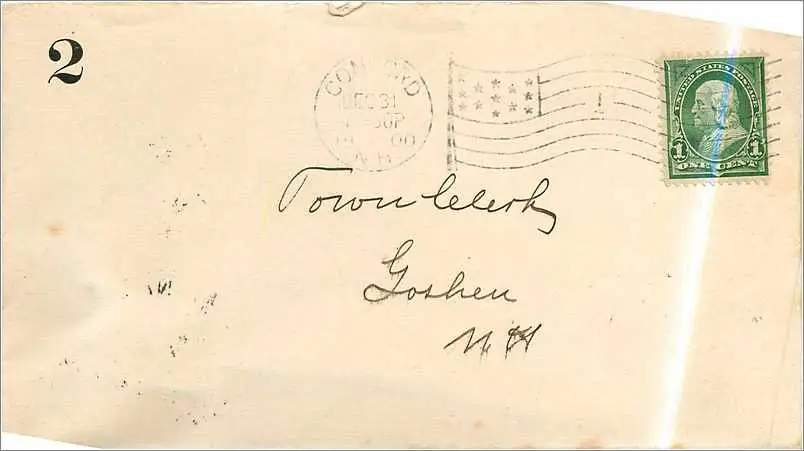 2
CONCORD
DEC 31
00
N.H.
1
UNITED STATES POSTAGE
1 1
ONE CENT
Town Clerk,
Goshen
N H